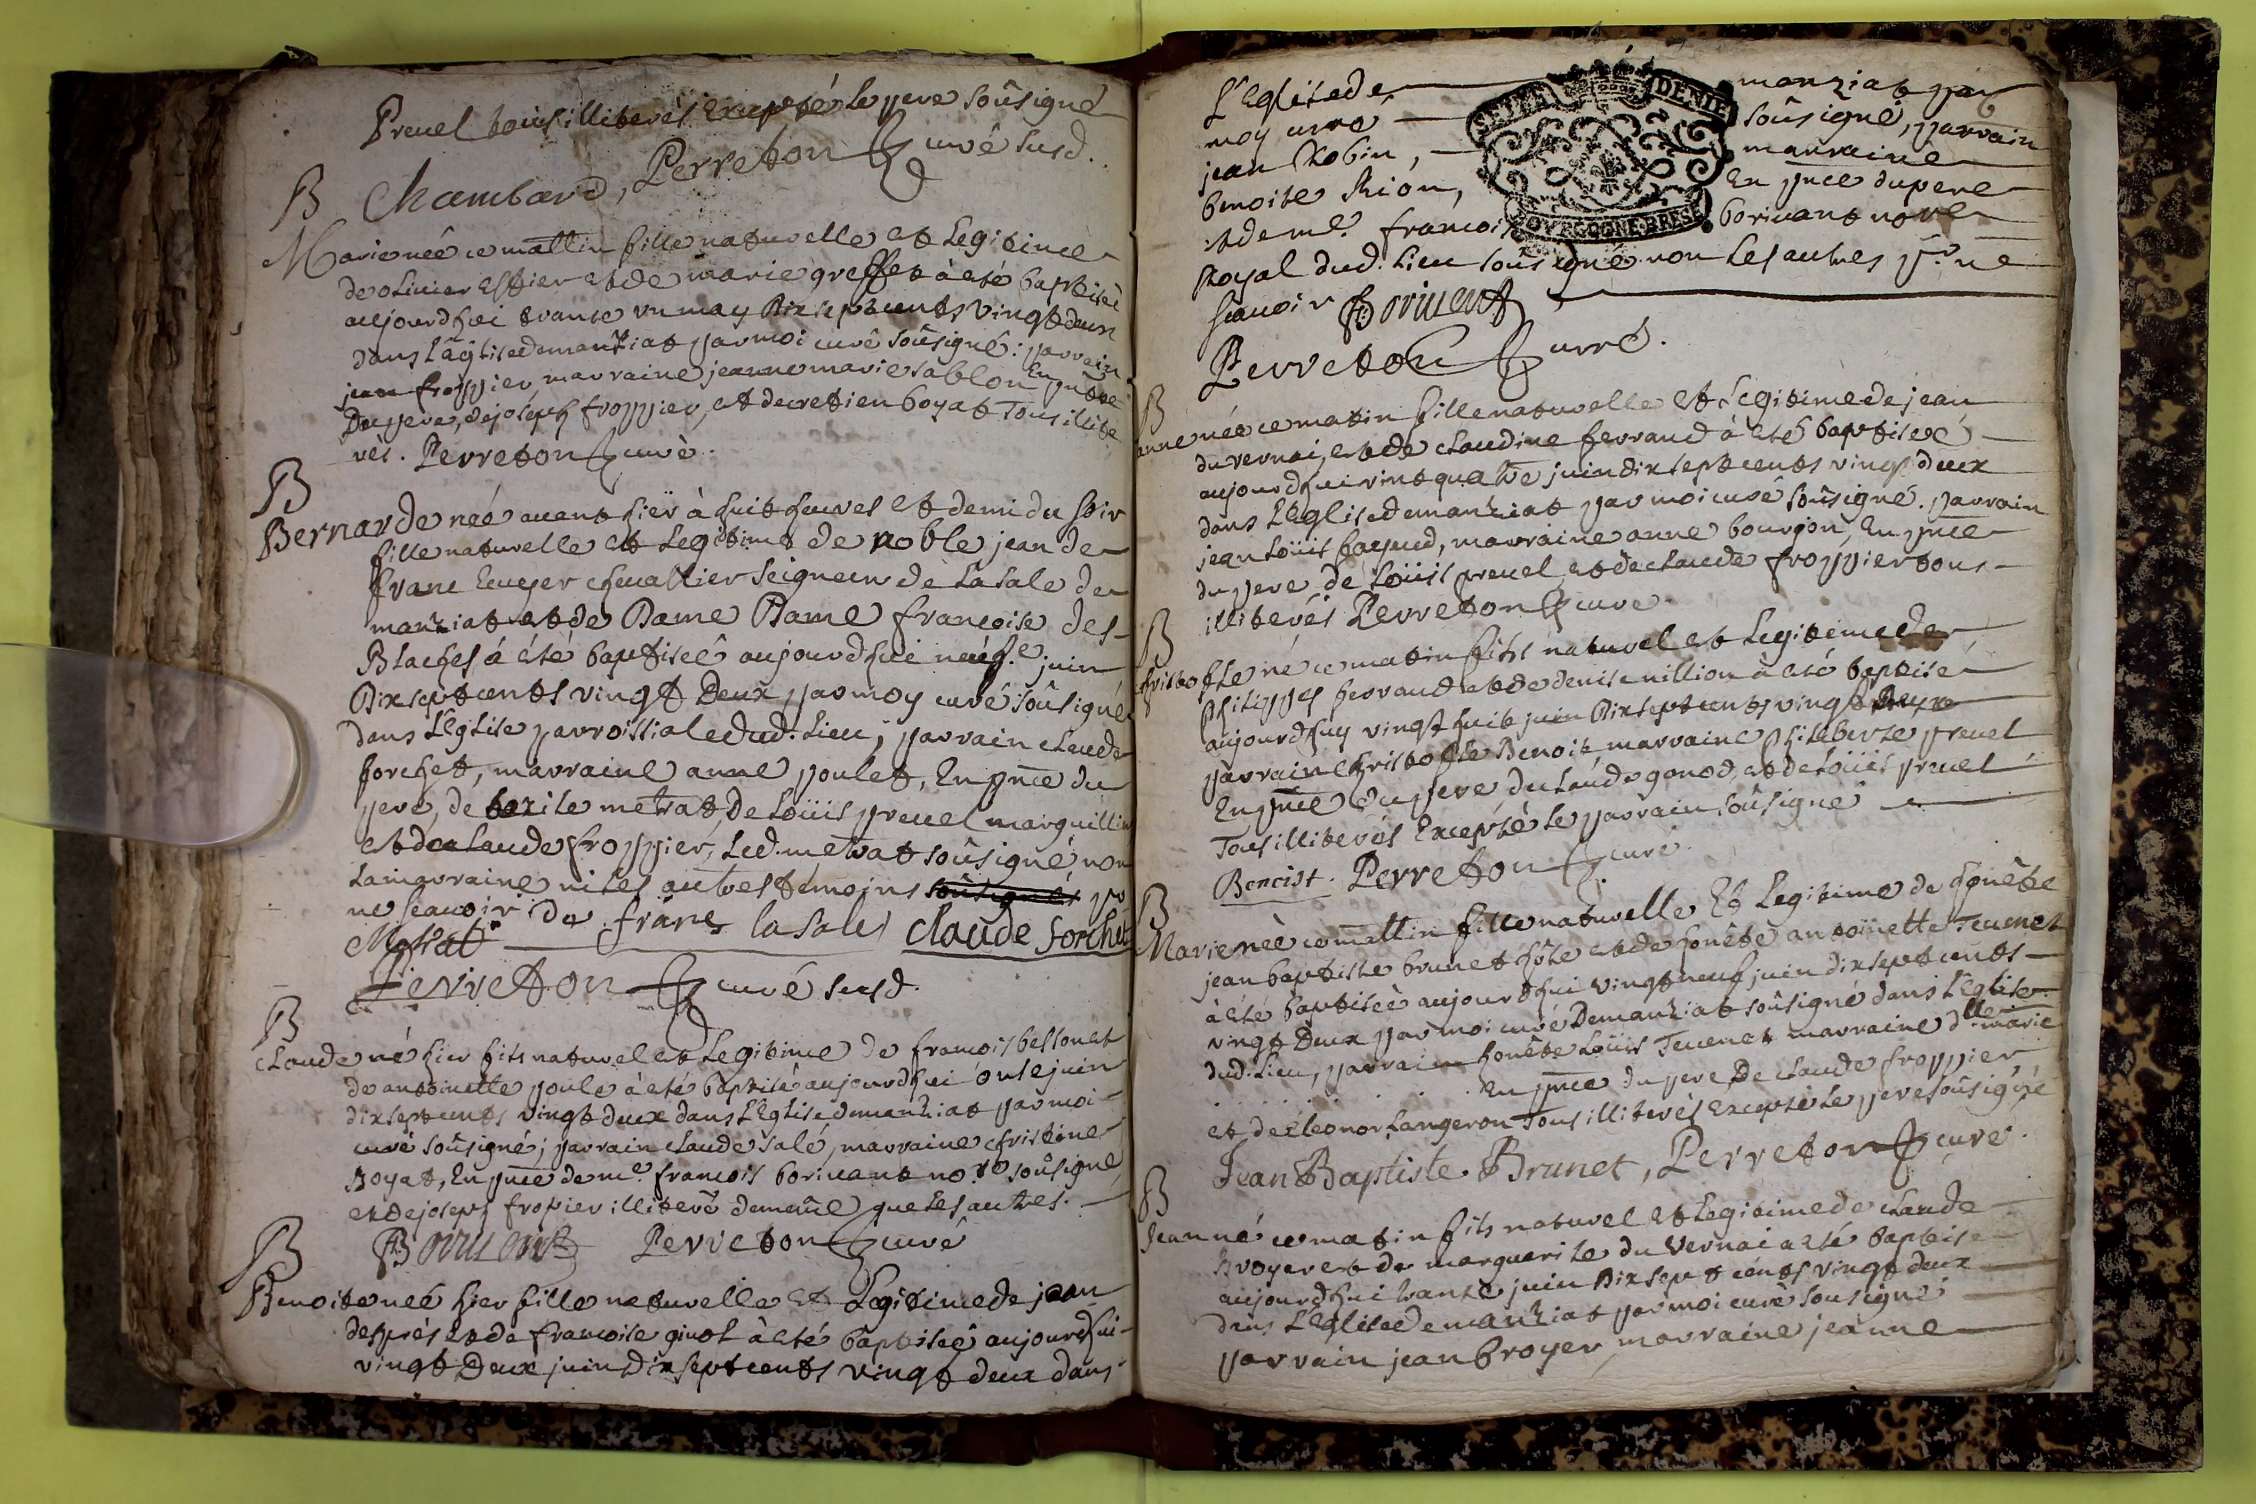 Preuel tous illiterés Excepté le pere soûsigné
Chambard, Perreton curé susd.
B
Marie née ce mattin fille naturelle et Legitime
de oLivier Estier et de marie greffet à eté baptisée
aujourdhui trante un may Dix sept cents vingt deux
dans L'églisedemanziat par moi curé soûsigné: parrain
jean froppier marraine jeanne marie sablon En pnce
Du pere, de joseph froppier, et de cretien boyat Tous illite
rés. Perreton curè.
B
Bernarde née avant hier à huit heures et demi du soir
fille naturelle et Legitime de noble jean de
franc Ecuyer chevallier seigneur de La sale de
manziat et de Dame Dame francoise des
Blaches á eté baptisée aujourdhui neuf.e juin
Dix sept cents vingt Deux par moy curé soûsigné
dans L'Eglise parroissiale dud. Lieu; parrain claude
forchet, marraine anne poulet, En pnce du
pere, de bazile metrat, De Loüis preuel marguillier
et de claude froppier, Led. metrat soûsigné non
La marraine ni les autres témoins soûsignés pr
ne scavoir de franc la sale claude forchet
Metrat
Perreton curé susd.
B
claude né hier fils naturel et Legitime de francois bellon et
de antoinette poule à eté baptisé aujourdhui onse juin
dix sept cents vingt deux dans L'Eglise demanziat par moi
curé soûsigné; parrain claude salé, marraine christine
Boyat, En pnce de me. francois borivant nore. soûsigné
et de joseph fropier illiteré de même que les autres.
Borivent Perreton curé
B
Benoite neé hier fille naturelle et Legitime de jean
desprès et de francoise ginot à eté baptiseé aujourdhui
vingt Deux juin Dix sept cents vingt deux dans
L'Eglise de manziat par
moy curé soûsigné, parrain
jean Robin, marraine
benoite Rion, En pnce du pere
et de me. francois borivant nore
Royal dud. Lieu soûsigné non Les autres pr. ne
scavoir Borivent
Perreton curé.
B
anne née ce matin fille naturelle et Legitime de jean
du vernai, et de claudine ferraud à eté baptiseé
aujourdhui vint quatre juin dix sept cents vingt deux
dans L'Eglise de manziat par moi curé soûsigné. parrain
jean Loüis bayaud, marraine anne bourgon, En pnce
du pere, de Loüis preuel et de claude froppier tous
illiterés Perreton curé
B
christofle né ce matin fils naturel et Legitime de
philippes ferraud et de denise nillion à eté baptisé
aujourdhuy vingt huit juin Dix sept cents vingt Deux
parrain christofle Benoit marraine philiberte preuel
En pnce du pere du claude gonod, et de Loüis preuel
Tous illiterés Excepté le parrain soûsigné
Benoist. Perreton curé
B
Marie neè ce mattin fille naturelle Et Legitime de honête
jean baptiste brunet hôte et de honête antoinette Teuenet
à eté baptiseè aujourdhui vingt neuf juin dix sept cents
vingt Deux par moi curé Demanziat soûsigné dans L'Eglise
dud. Lieu, parrain honête Loüis Teuenet marraine dlle. marie
. . . . . . En pnce du pere De claude froppier
et de Eleonor Langeron Tous illiterés Excepté Le pere soûsigné
Jean Baptiste Brunet, Perreton curé.
B
Jean né ce matin fils naturel et Legitime de claude
Broyer et de marguerite du vernai a eté baptisé
aujourdhui trante juin Dix sept cents vingt deux
dans L'Eglise demanziat par moi curé sousigné
parrain jean broyer, marraine jeanne
DENIE
BOVRGOGNE.BRESSE